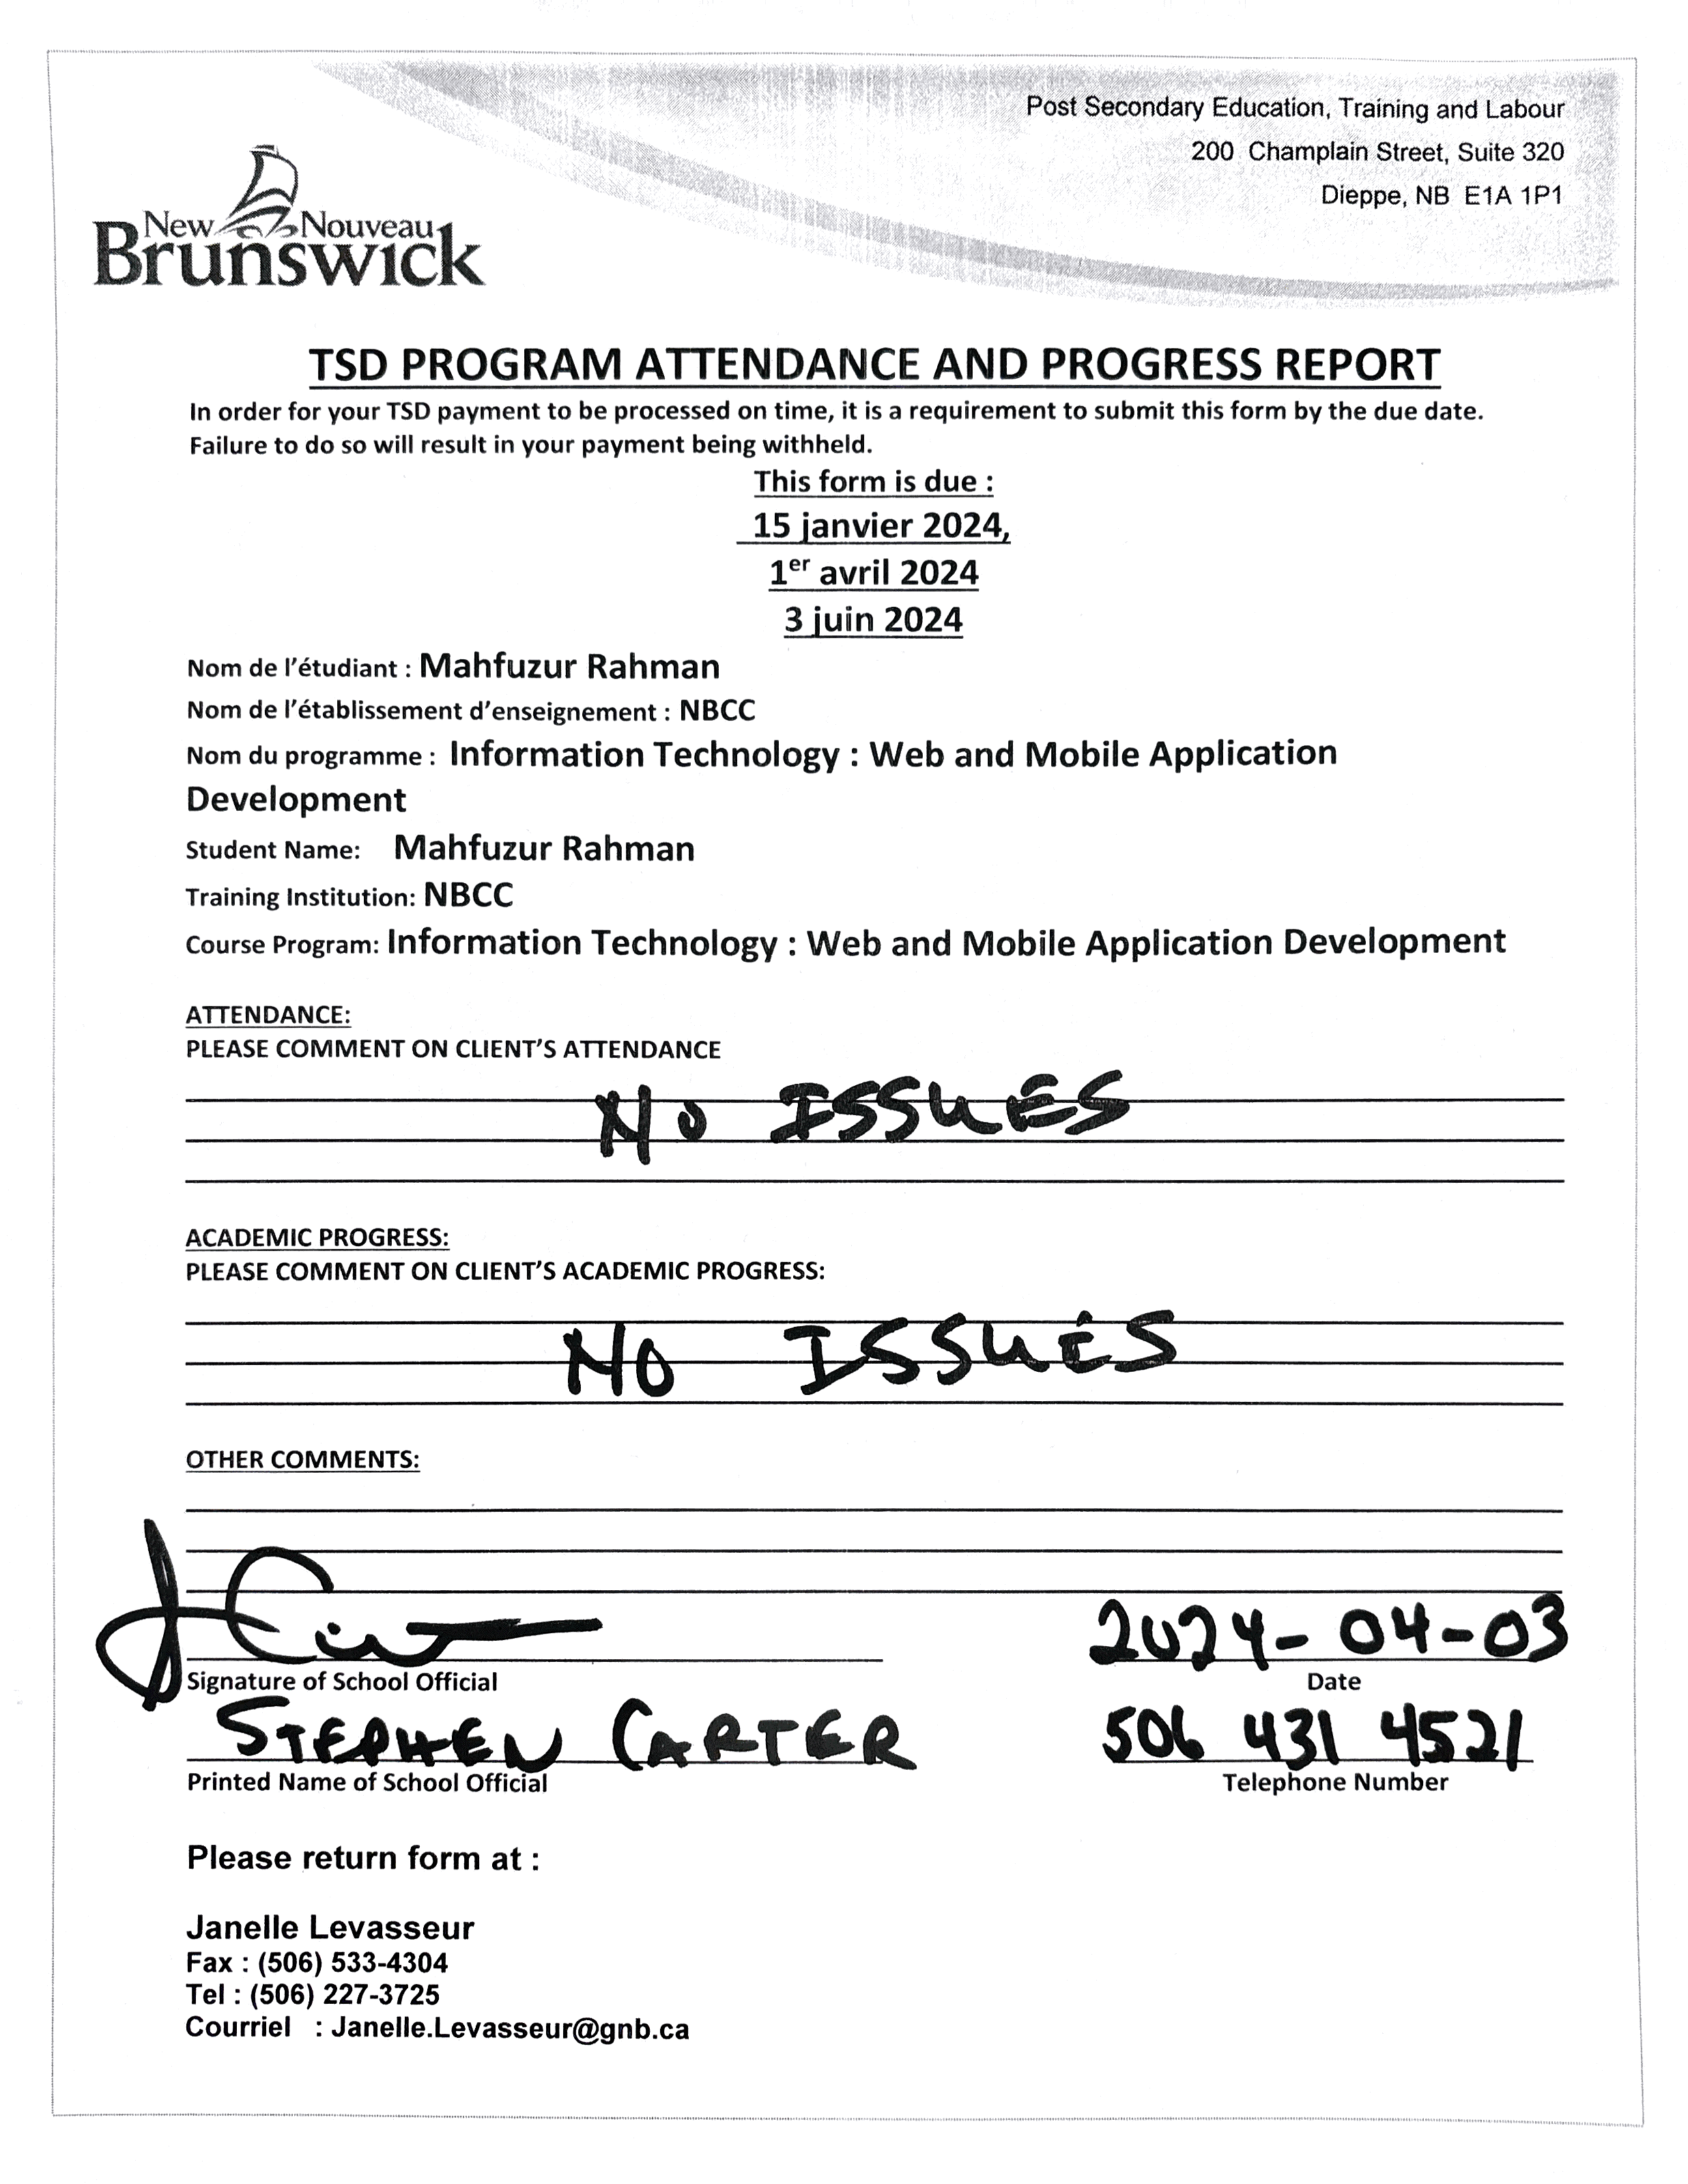 Post Secondary Education, Training and Labour
200 Champlain Street, Suite 320
Dieppe, NB E1A 1P1
New Nouveau
Brunswick
TSD PROGRAM ATTENDANCE AND PROGRESS REPORT
In order for your TSD payment to be processed on time, it is a requirement to submit this form by the due date.
Failure to do so will result in your payment being withheld.
This form is due :
15 janvier 2024,
1er avril 2024
3 juin 2024
Nom de l'étudiant : Mahfuzur Rahman
Nom de l'établissement d'enseignement : NBCC
Nom du programme : Information Technology : Web and Mobile Application
Development
Student Name: Mahfuzur Rahman
Training Institution: NBCC
Course Program: Information Technology : Web and Mobile Application Development
ATTENDANCE:
PLEASE COMMENT ON CLIENT'S ATTENDANCE
NO ISSUES
ACADEMIC PROGRESS:
PLEASE COMMENT ON CLIENT'S ACADEMIC PROGRESS:
NO ISSUES
OTHER COMMENTS:
2024-04-03
Signature of School Official Date
STEPHEN CARTER 506 431 4521
Printed Name of School Official Telephone Number
Please return form at :
Janelle Levasseur
Fax : (506) 533-4304
Tel : (506) 227-3725
Courriel : Janelle.Levasseur@gnb.ca